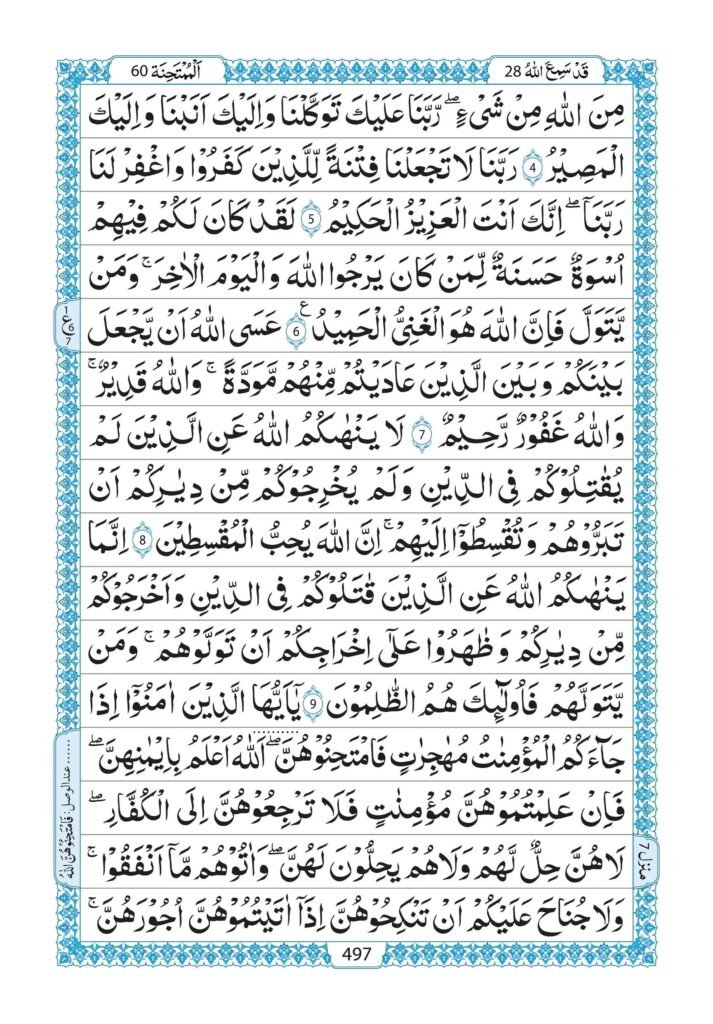 قَدْ سَمِعَ اللّٰهُ 28
اَلْمُمْتَحِنَة 60
مِنَ اللّٰهِ مِنْ شَیْءٍ ؕ رَبَّنَا عَلَیْكَ تَوَكَّلْنَا وَاِلَیْكَ اَنَبْنَا وَاِلَیْكَ
الْمَصِیْرُ 4 رَبَّنَا لَا تَجْعَلْنَا فِتْنَةً لِّلَّذِیْنَ كَفَرُوْا وَاغْفِرْ لَنَا
رَبَّنَا ۚ اِنَّكَ اَنْتَ الْعَزِیْزُ الْحَكِیْمُ 5 لَقَدْ كَانَ لَكُمْ فِیْهِمْ
اُسْوَةٌ حَسَنَةٌ لِّمَنْ كَانَ یَرْجُوا اللّٰهَ وَالْیَوْمَ الْاٰخِرَ ؕ وَمَنْ
یَّتَوَلَّ فَاِنَّ اللّٰهَ هُوَ الْغَنِیُّ الْحَمِیْدُ 6 عَسَی اللّٰهُ اَنْ یَّجْعَلَ
بَیْنَكُمْ وَبَیْنَ الَّذِیْنَ عَادَیْتُمْ مِّنْهُمْ مَّوَدَّةً ؕ وَاللّٰهُ قَدِیْرٌ ؕ
وَاللّٰهُ غَفُوْرٌ رَّحِیْمٌ 7 لَا یَنْهٰىكُمُ اللّٰهُ عَنِ الَّذِیْنَ لَمْ
یُقَاتِلُوْكُمْ فِی الدِّیْنِ وَلَمْ یُخْرِجُوْكُمْ مِّنْ دِیٰرِكُمْ اَنْ
تَبَرُّوْهُمْ وَتُقْسِطُوْۤا اِلَیْهِمْ ؕ اِنَّ اللّٰهَ یُحِبُّ الْمُقْسِطِیْنَ 8 اِنَّمَا
یَنْهٰىكُمُ اللّٰهُ عَنِ الَّذِیْنَ قٰتَلُوْكُمْ فِی الدِّیْنِ وَاَخْرَجُوْكُمْ
مِّنْ دِیٰرِكُمْ وَظٰهَرُوْا عَلٰۤی اِخْرَاجِكُمْ اَنْ تَوَلَّوْهُمْ ۚ وَمَنْ
یَّتَوَلَّهُمْ فَاُولٰٓىِٕكَ هُمُ الظّٰلِمُوْنَ 9 یٰۤاَیُّهَا الَّذِیْنَ اٰمَنُوْۤا اِذَا
جَآءَكُمُ الْمُؤْمِنٰتُ مُهٰجِرٰتٍ فَامْتَحِنُوْهُنَّ ؕ اَللّٰهُ اَعْلَمُ بِاِیْمٰنِهِنَّ ۚ
فَاِنْ عَلِمْتُمُوْهُنَّ مُؤْمِنٰتٍ فَلَا تَرْجِعُوْهُنَّ اِلَی الْكُفَّارِ ؕ
لَاهُنَّ حِلٌّ لَّهُمْ وَلَاهُمْ یَحِلُّوْنَ لَهُنَّ ؕ وَاٰتُوْهُمْ مَّاۤ اَنْفَقُوْا ؕ
وَلَا جُنَاحَ عَلَیْكُمْ اَنْ تَنْكِحُوْهُنَّ اِذَاۤ اٰتَیْتُمُوْهُنَّ اُجُوْرَهُنَّ ؕ
1
ع6
7
عندالوصل: فَامْتَحِنُوْهُنَّ اللّٰهُ
منزل 7
497